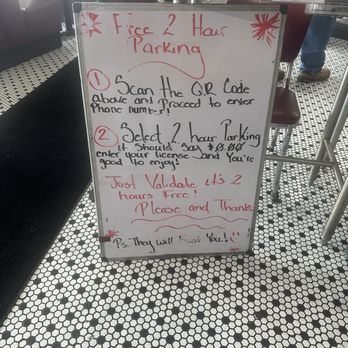 Free 2 Hour
Parking
1 Scan The QR Code
above and Proceed to enter
Phone number!
2 Select 2 hour Parking
it should say $0.00
enter your license and You're
good to enjoy!
Just Validate it's 2
hours Free!
Please and Thanks
Ps. They will boot You!